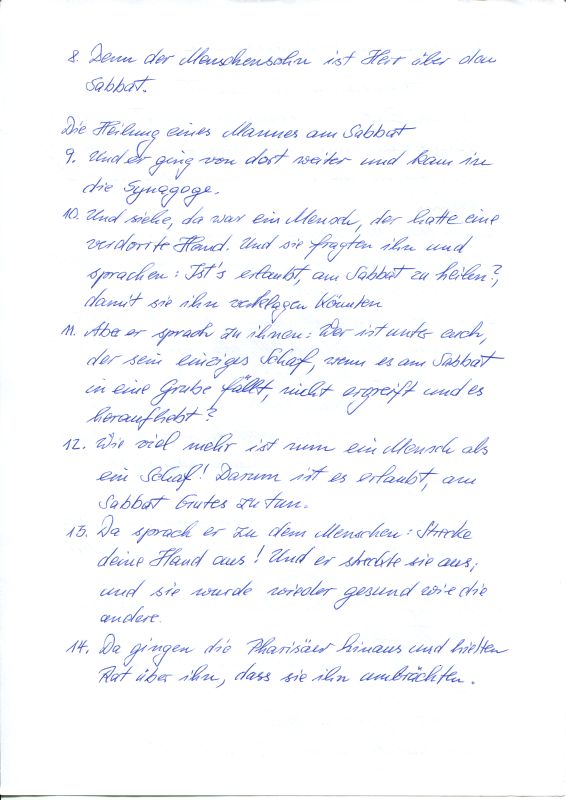 8. Denn der Menschensohn ist Herr über den
Sabbat.
Die Heilung eines Mannes am Sabbat
9. Und er ging von dort weiter und kam in
die Synagoge.
10. Und siehe, da war ein Mensch, der hatte eine
verdorrte Hand. Und sie fragten ihn und
sprachen: Ist's erlaubt, am Sabbat zu heilen?,
damit sie ihn verklagen könnten
11. Aber er sprach zu ihnen: Wer ist unter euch,
der sein einziges Schaf, wenn es am Sabbat
in eine Grube fällt, nicht ergreift und es
heraufhebt?
12. Wie viel mehr ist nun ein Mensch als
ein Schaf! Darum ist es erlaubt, am
Sabbat Gutes zu tun.
13. Da sprach er zu dem Menschen: Strecke
deine Hand aus! Und er streckte sie aus;
und sie wurde wieder gesund wie die
andere.
14. Da gingen die Pharisäer hinaus und hielten
Rat über ihn, dass sie ihn umbrächten.